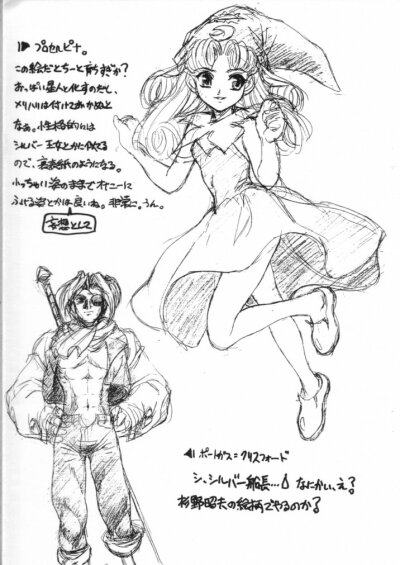 プロセルピナ。
この絵だとちーと育ちすぎか?
おっぱい星人と化すのだし、
メリハリは付けておかぬと
なぁ。性格的には
シルバー王女とかに似てる
ので、裏表紙のようになる。
小っちゃい姿のままで
ふける姿とかは良いね。非常に。うん。
妄想として
ポートガス=クリスフォード
シ、シルバー船長…なにかい、え?
杉野昭夫の絵柄でやるのか?